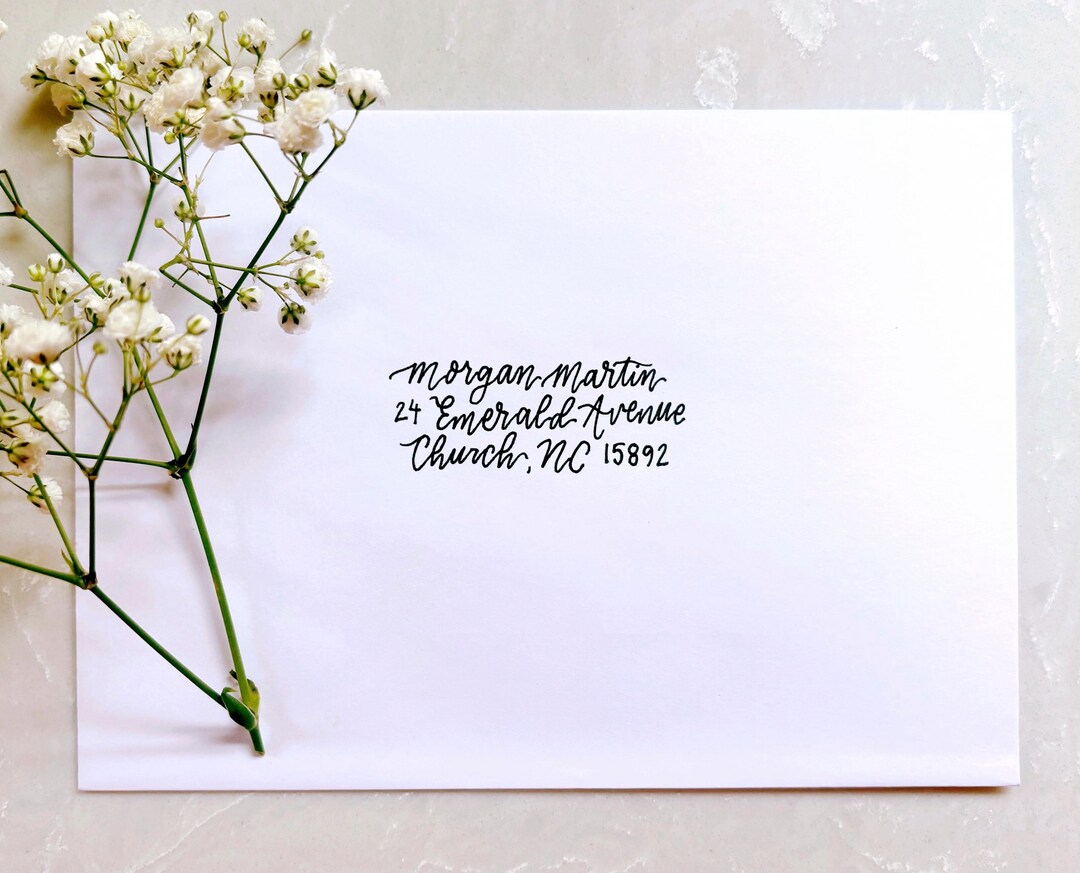 Morgan Martin
24 Emerald Avenue
Church, NC 15892